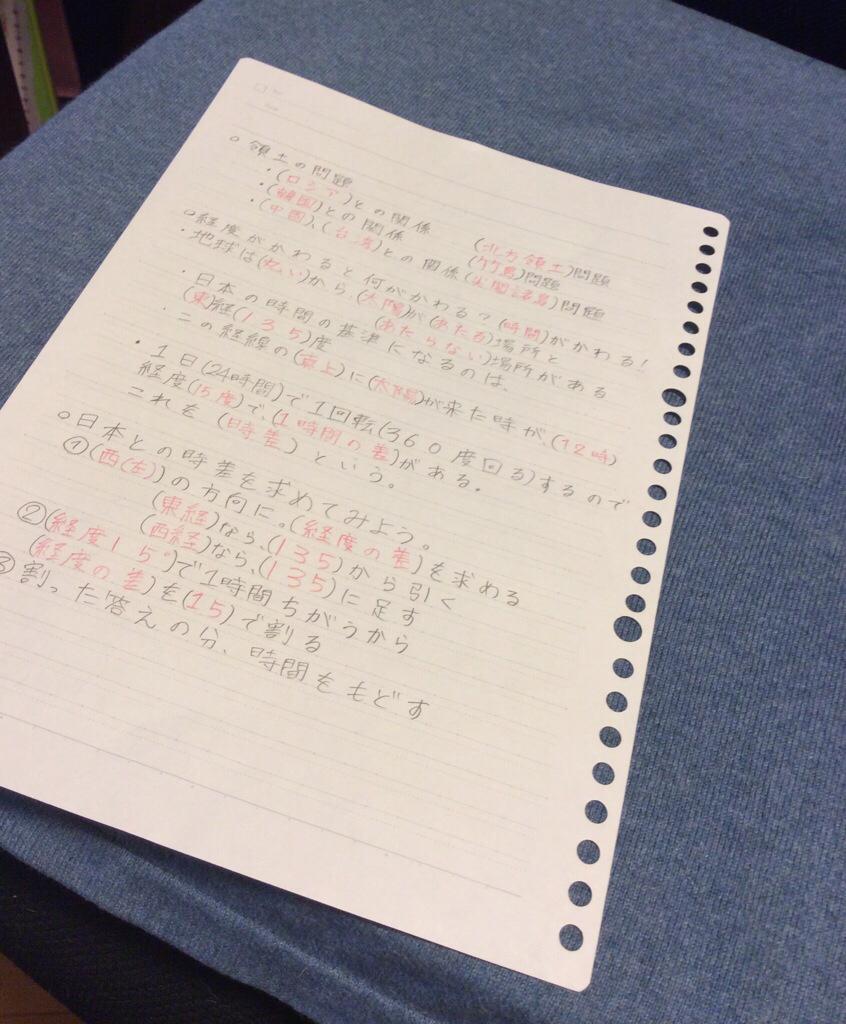 ○領土の問題
・(ロシア)との関係 (北方領土)問題
・(韓国)との関係 (竹島)問題
・(中国)、(台湾)との関係(尖閣諸島)問題
○経度がかわると何がかわる?(時間)がかわる!
・地球は(丸い)から(太陽)が(あたる)場所と
(あたらない)場所がある
・日本の時間の基準になるのは、
(東)経(135)度
・この経線の(真上)に(太陽)が来た時が、(12時)
・1日(24時間)で1回転(360度回る)するので
経度(15度)で、(1時間の差)がある。
これを(時差)という。
○日本との時差を求めてみよう。
①(西(左))の方向に。(経度の差)を求める
(東経)なら、(135)から引く
(西経)なら、(135)に足す
②(経度15°)で1時間ちがうから
(経度の差)を(15)で割る
③割った答えの分、時間をもどす